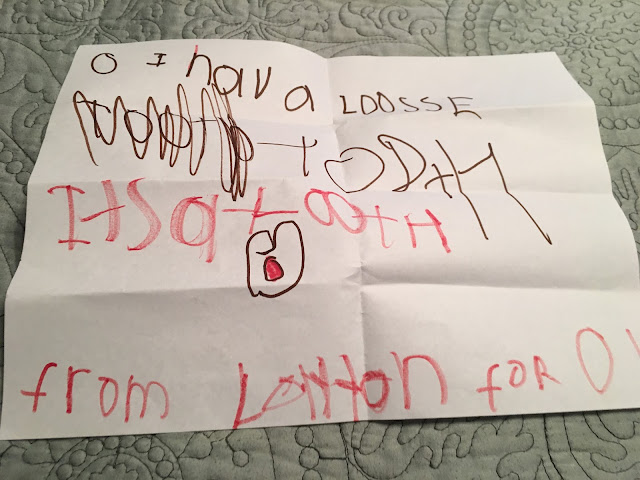 O I hav a LOOSSE
tOOtH
ItSatOOtH
from Layton foR O